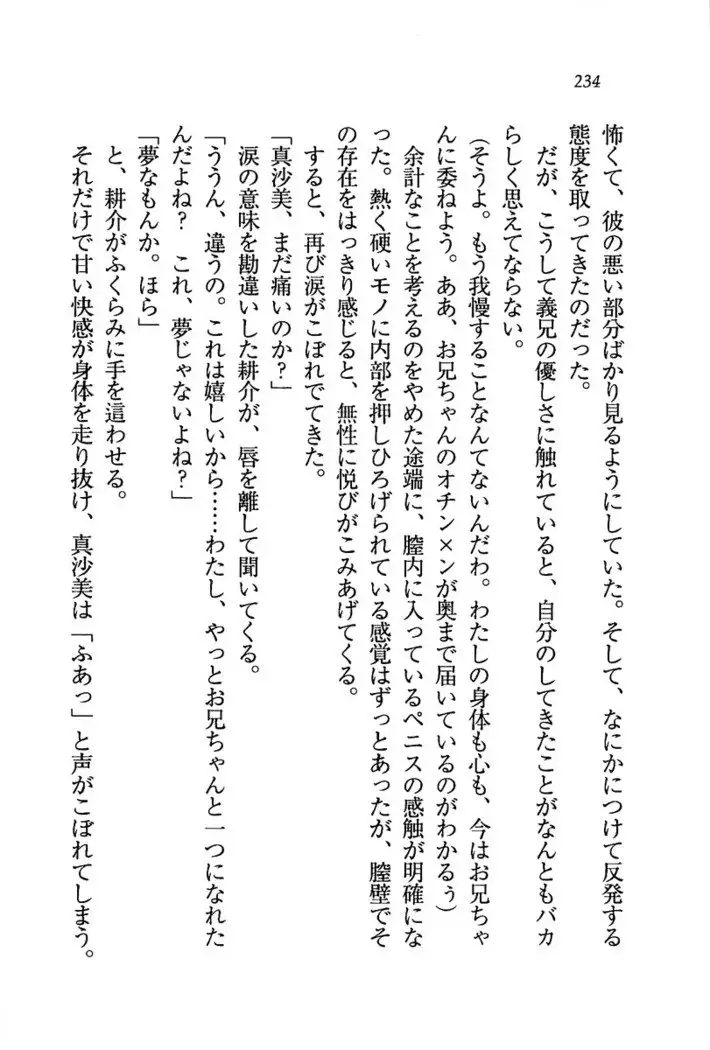 234
怖くて、彼の悪い部分ばかり見るようにしていた。そして、なにかにつけて反発する
態度を取ってきたのだった。
だが、こうして義兄の優しさに触れていると、自分のしてきたことがなんともバカ
らしく思えてならない。
(そうよ。もう我慢することなんてないんだわ。わたしの身体も心も、今はお兄ちゃ
んに委ねよう。ああ、お兄ちゃんのオチン×ンが奥まで届いているのがわかるぅ)
余計なことを考えるのをやめた途端に、膣内に入っているペニスの感触が明確にな
った。熱く硬いモノに内部を押しひろげられている感覚はずっとあったが、膣壁でそ
の存在をはっきり感じると、無性に悦びがこみあげてくる。
すると、再び涙がこぼれでてきた。
「真沙美、まだ痛いのか?」
涙の意味を勘違いした耕介が、唇を離して聞いてくる。
「ううん、違うの。これは嬉しいから……わたし、やっとお兄ちゃんと一つになれた
んだよね? これ、夢じゃないよね?」
「夢なもんか。ほら」
と、耕介がふくらみに手を這わせる。
それだけで甘い快感が身体を走り抜け、真沙美は「ふあっ」と声がこぼれてしまう。